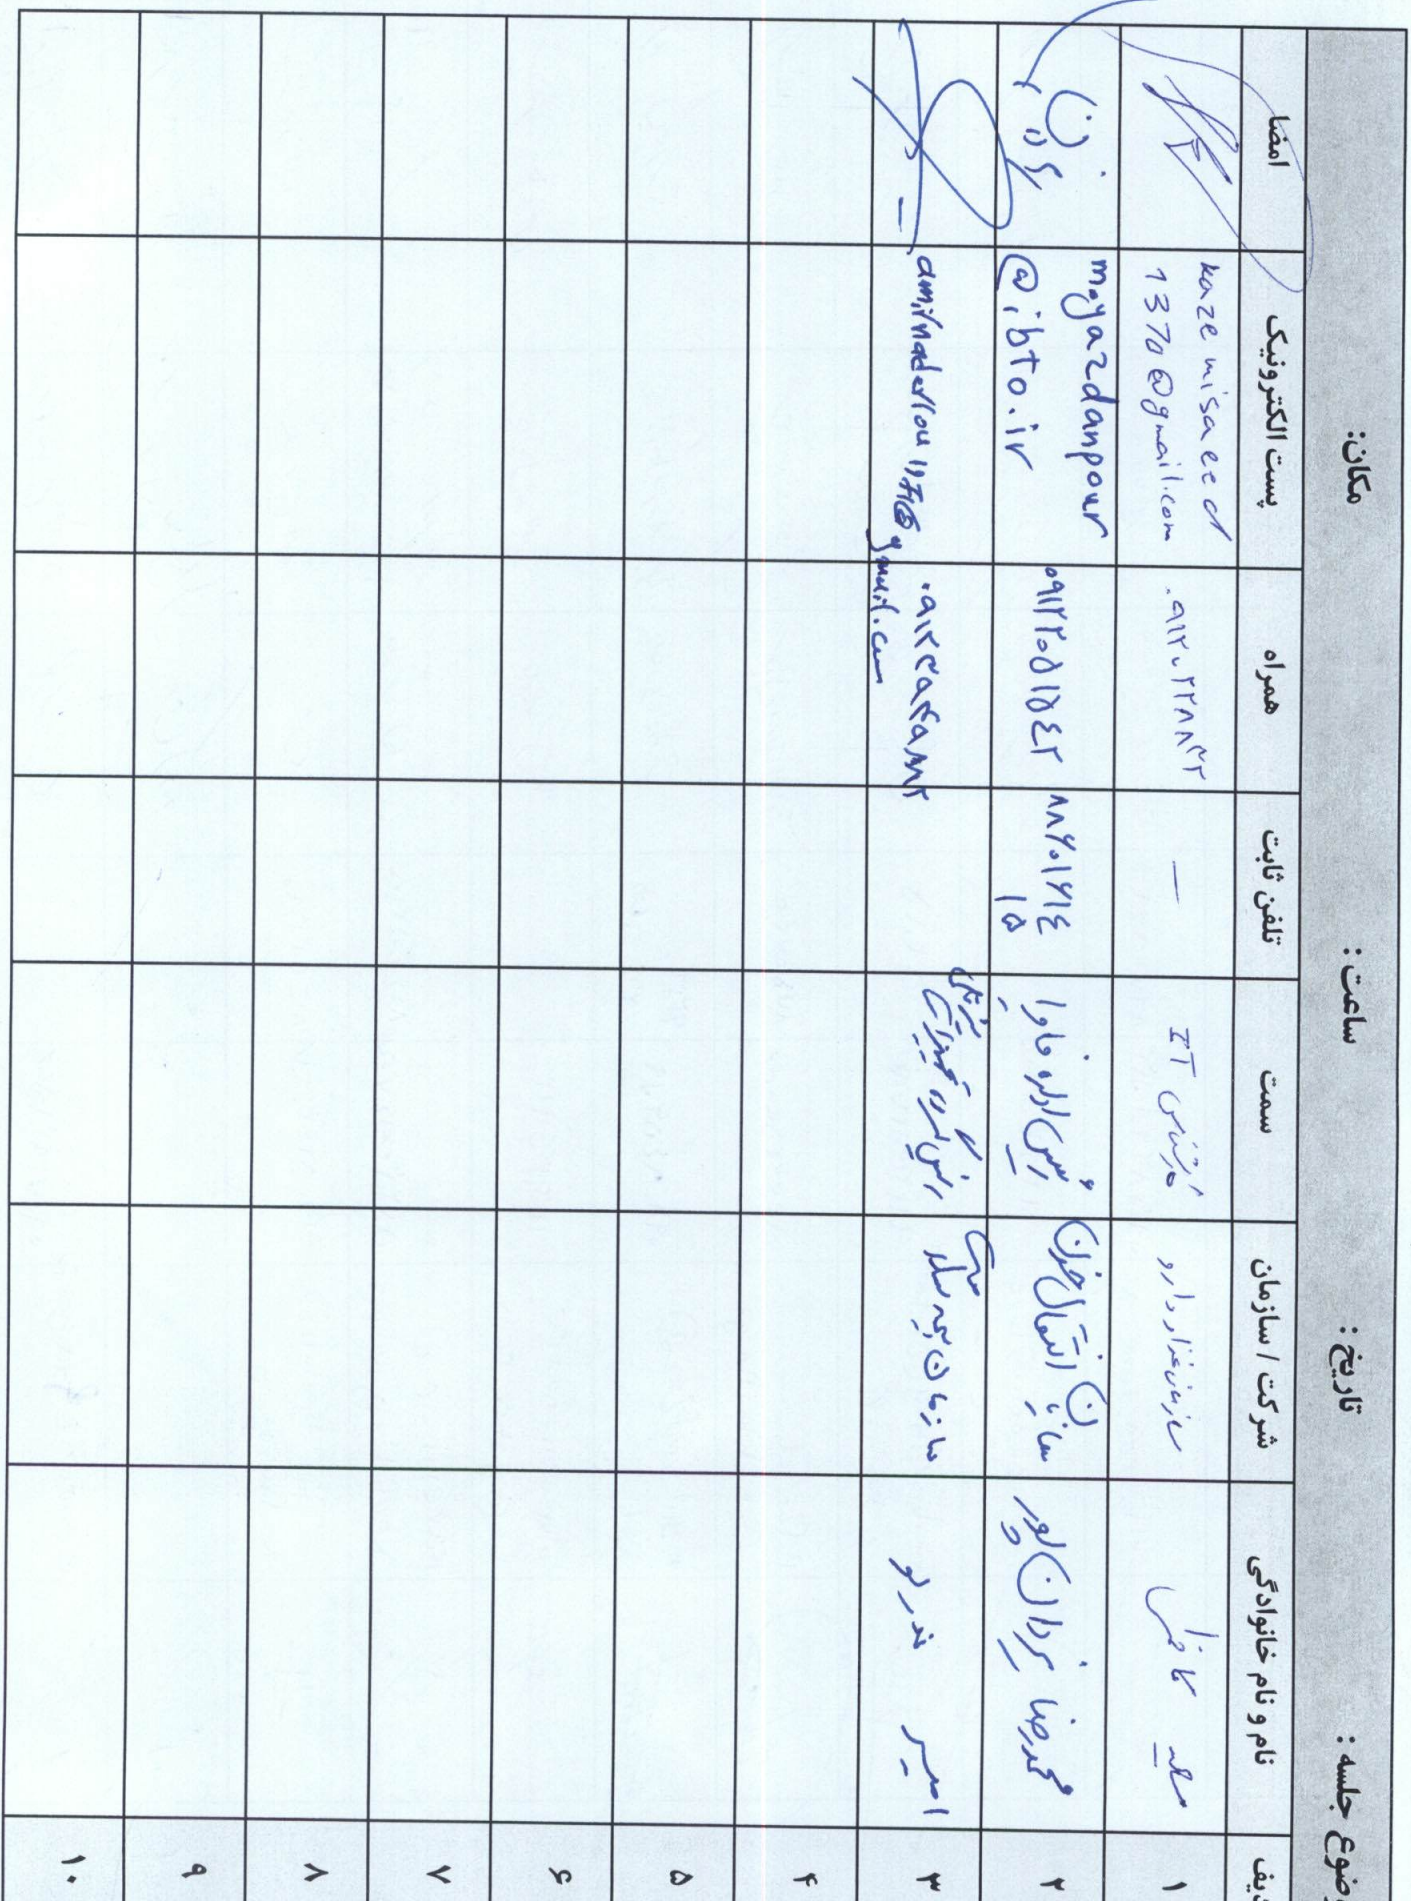 موضوع جلسه : تاریخ : ساعت : مکان:
ردیف نام و نام خانوادگی شرکت / سازمان سمت تلفن ثابت همراه پست الکترونیک امضا
۱ سعید کاظمی سازمان غذا و دارو کارشناس IT — ۰۹۱۲۰۲۲۸۸۳۲ kazemisaeed
1370@gmail.com
۲ محمدرضا یزدان پور سازمان انتقال خون رئیس اداره فاوا ۸۸۶۰۱۶۱٤ ۰۹۱۲۲۰۵۱۵٤۲ m.yazdanpour
۱۵ @ibto.ir
۳ امیر نادرلو سازمان بیمه سلامت رئیس گروه
gmail.com
۴
۵
۶
۷
۸
۹
۱۰